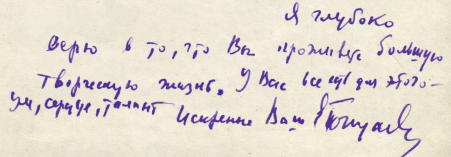 Я глубоко
верю в то, что Вы проживете большую
творческую жизнь. У Вас все еще для этого —
ум, сердце, талант Искренне Ваш